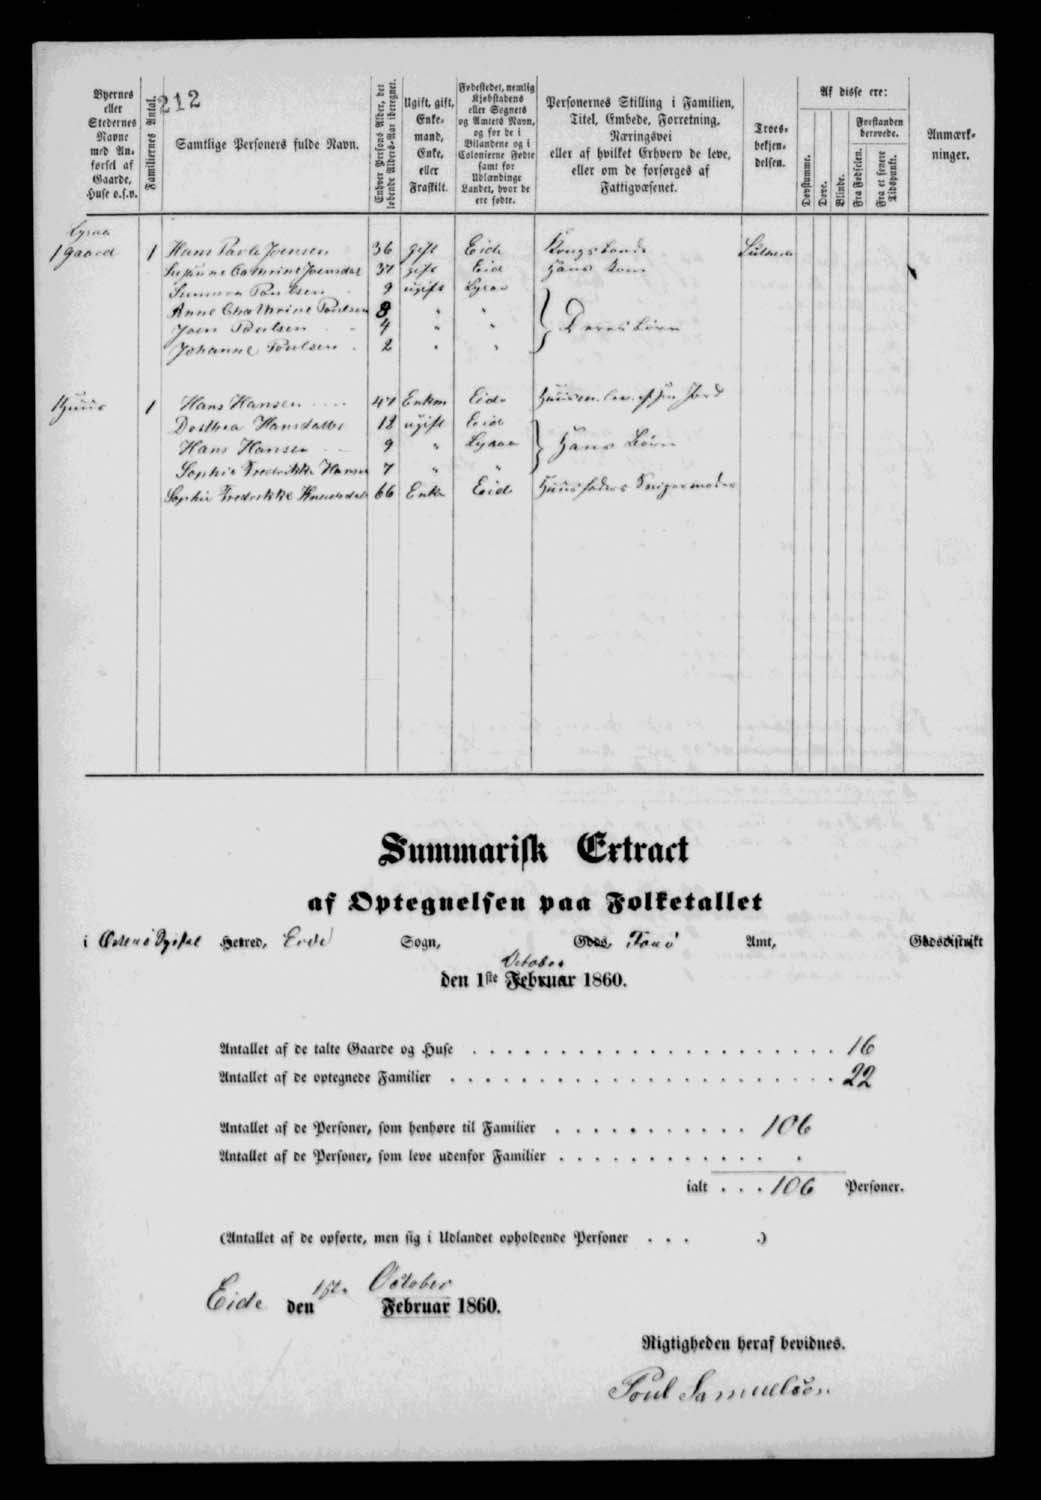 212
Byernes eller Stedernes Navne med Anførsel af Gaarde, Huse o.s.v.
Familiernes Antal.
Samtlige Personers fulde Navn.
Enhver Persons Alder, det løbende Alders-Aar iberegnet.
Ugift, gift, Enkemand, Enke, eller Fraskilt.
Fødestedet, nemlig Kjøbstadens eller Sognets og Amtets Navn, og for de i Bilandene og i Colonierne Fødte samt for Udlændinge Landet, hvor de ere fødte.
Personernes Stilling i Familien, Titel, Embede, Forretning, Næringsvei eller af hvilket Erhverv de leve, eller om de forsørges af Fattigvæsenet.
Troesbekjendelsen.
Af disse ere:
Døvstumme.
Døve.
Blinde.
Forstanden berøvede.
Fra Fødselen.
Fra et senere Tidspunkt.
Anmærkninger.
1 gaard 1 Hans 36 gift Eide
Cathrine 31 gift Eid Hans Kone
Poulsen 9 ugift
Anne Chathrine Poulsen 8 " "
Joen Poulsen 4 " " Deres Börn
Johanne Poulsen 2 " "
1 Huus 1 Hans Hansen 47 Enkem Eide
Dorthea Hansdatter 12 ugift Eide
Hans Hansen 9 " Hans Börn
Sophie Fredrikke Hansd 7 " "
Sophie Fredrikke 66 Enke Eide Huusfaders
Summarisk Extract
af Optegnelsen paa Folketallet
i Österö Syssel Herred, Eide Sogn, Gods, Færö Amt, Godsdistrikt
October
den 1ste Februar 1860.
Antallet af de talte Gaarde og Huse 16
Antallet af de optegnede Familier 22
Antallet af de Personer, som henhøre til Familier 106
Antallet af de Personer, som leve udenfor Familier
ialt 106 Personer.
(Antallet af de opførte, men sig i Udlandet opholdende Personer . . . .)
1ste October
Eide den Februar 1860.
Rigtigheden heraf bevidnes.
Poul Samuelsen